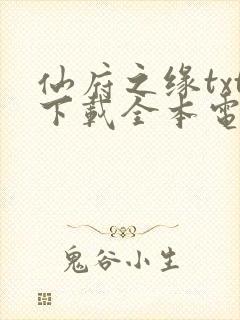 仙府之缘txt
下载全本電
鬼谷小生